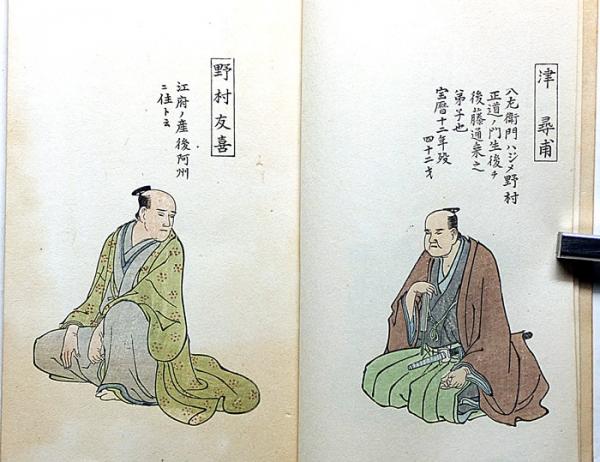 津 尋甫
八左衛門ハジメ野村
正道ノ門生後チ
後藤通乗之
弟子也
宝暦十二年歿
四十二才
野村友喜
江府ノ産後阿州
ニ住ト云